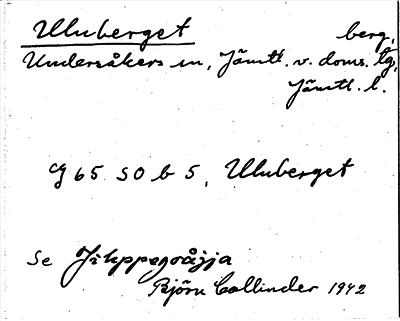 Uluberget berg,
Undersåkers sn, Jämtl. v. doms. tg,
Jämtl. l.
G 65 SO b 5, Uluberget
Se
Björn Collinder 1942